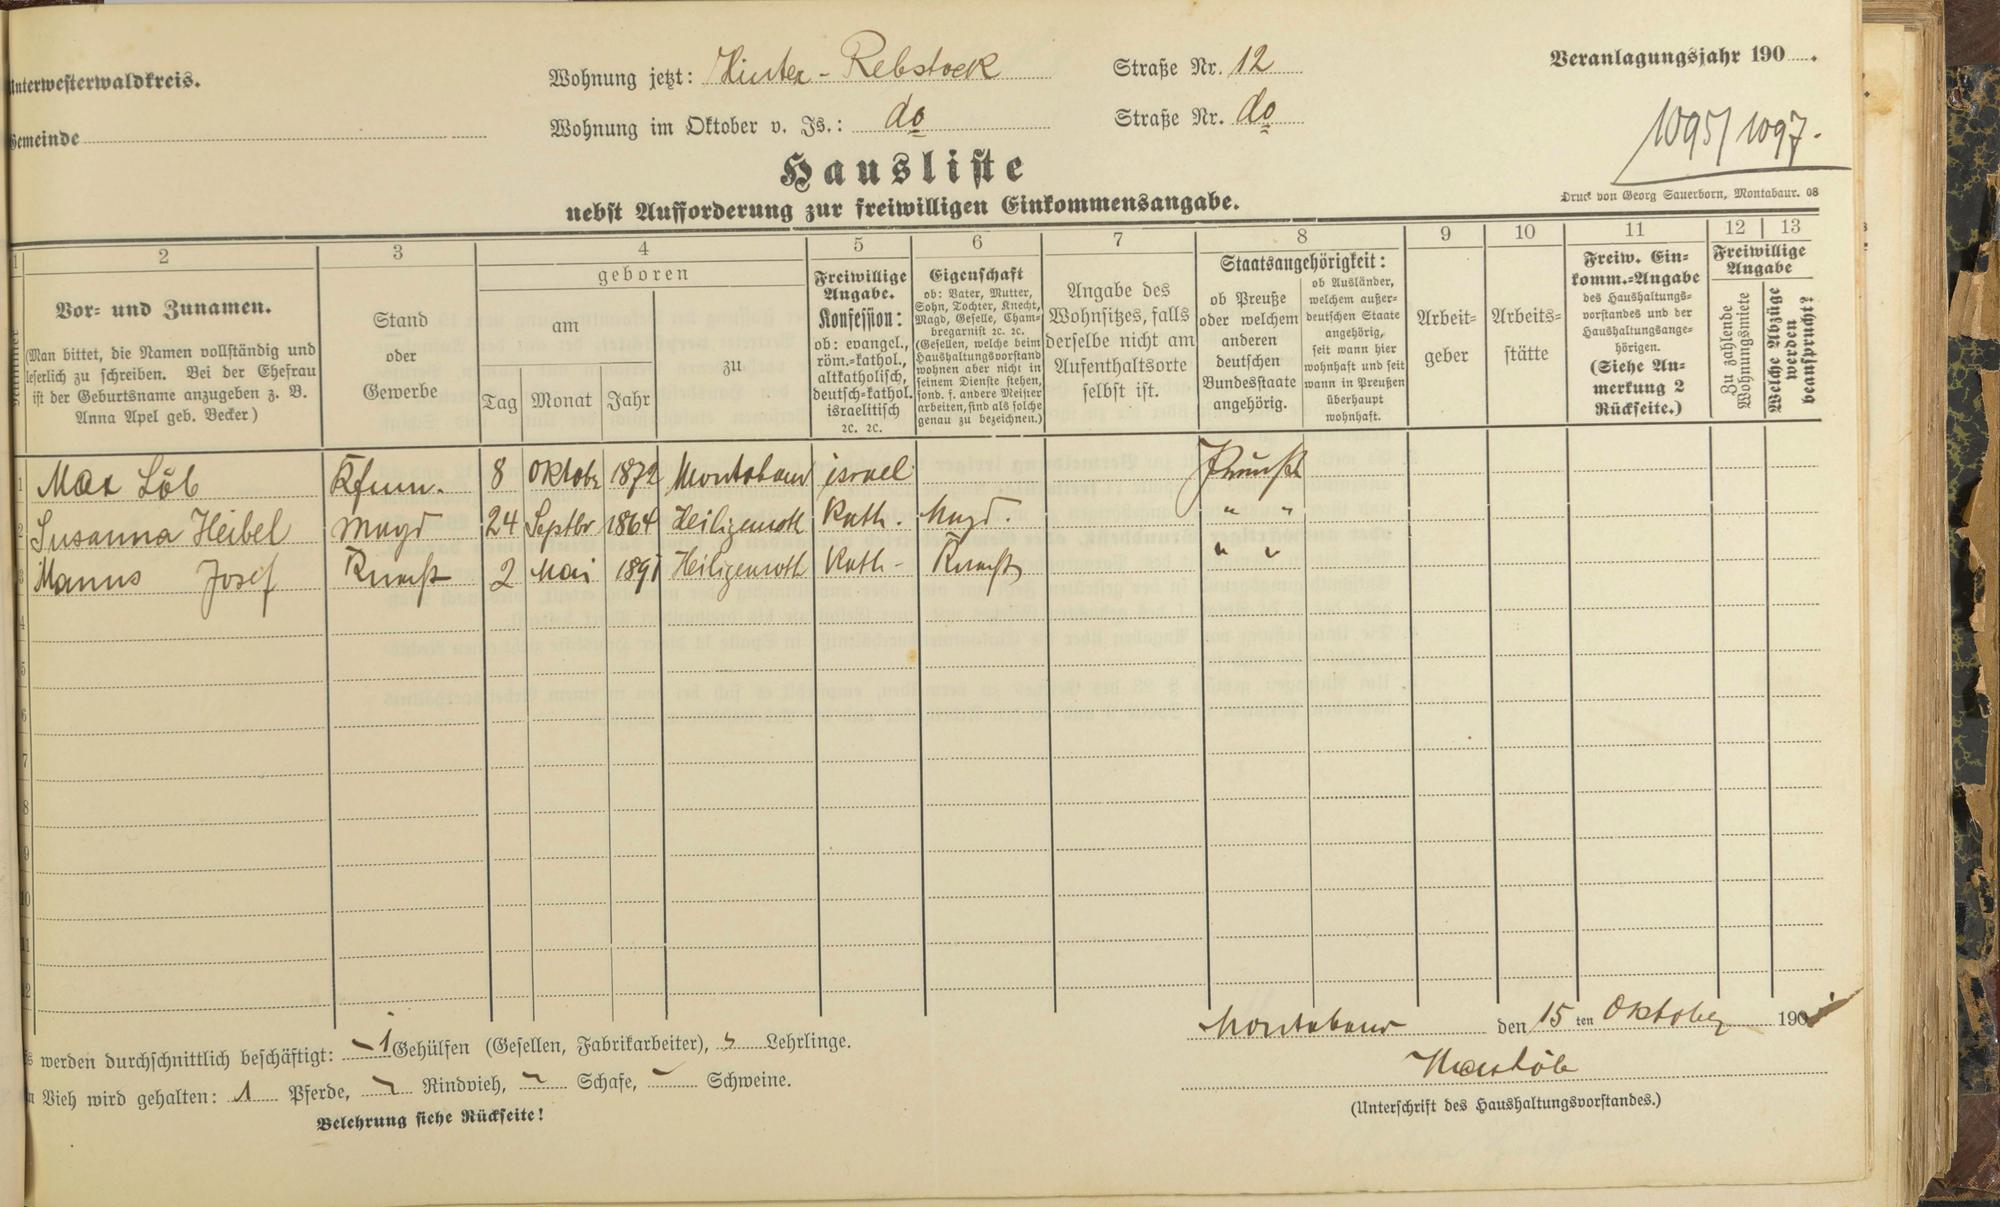 Unterwesterwaldkreis.
Wohnung jetzt: Hinter-Rebstock Straße Nr. 12
Veranlagungsjahr 190 .
Gemeinde
Wohnung im Oktober v. Js.: do Straße Nr. do
1095/1097.
Hausliste
nebst Aufforderung zur freiwilligen Einkommensangabe.
Druck von Georg Sauerborn, Montabaur. 08
1 2 3 4 5 6 7 8 9 10 11 12 13
Nummer
Vor- und Zunamen.
(Man bittet, die Namen vollständig und
leserlich zu schreiben. Bei der Ehefrau
ist der Geburtsname anzugeben z. B.
Anna Apel geb. Becker)
Stand
oder
Gewerbe
geboren
am
Tag Monat Jahr
zu
Freiwillige
Angabe.
Konfession:
ob: evangel.,
röm.=kathol.,
altkatholisch,
deutsch=kathol.
israelitisch
2c. 2c.
Eigenschaft
ob: Vater, Mutter,
Sohn, Tochter, Knecht,
Magd, Geselle, Cham-
bregarnist 2c. 2c.
(Gesellen, welche beim
Haushaltungsvorstand
wohnen aber nicht in
seinem Dienste stehen,
sond. f. andere Meister
arbeiten, sind als solche
genau zu bezeichnen.)
Angabe des
Wohnsitzes, falls
derselbe nicht am
Aufenthaltsorte
selbst ist.
Staatsangehörigkeit:
ob Preuße
oder welchem
anderen
deutschen
Bundesstaate
angehörig.
ob Ausländer,
welchem außer-
deutschen Staate
angehörig,
seit wann hier
wohnhaft und seit
wann in Preußen
überhaupt
wohnhaft.
Arbeit-
geber
Arbeits-
stätte
Freiw. Ein-
komm.=Angabe
des Haushaltungs-
vorstandes und der
Haushaltungsange-
hörigen.
(Siehe An-
merkung 2
Rückseite.)
Freiwillige
Angabe
Zu zahlende
Wohnungsmiete
Welche Abzüge
werden
beansprucht?
1 Max Löb Kfmn. 8 Oktobr 1872 Montabaur israel. Preuße
2 Susanna Heibel Magd 24 Septbr 1864 Heiligenroth Kath. Magd. " "
3 Manns Josef Knecht 2 Mai 1891 Heiligenroth Kath- Knecht " "
4
5
6
7
8
9
10
11
12
Montabaur den 15 ten Oktober 190
Es werden durchschnittlich beschäftigt: 1 Gehülfen (Gesellen, Fabrikarbeiter), Lehrlinge.
Max Löb
An Vieh wird gehalten: 1 Pferde, Rindvieh, Schafe, Schweine.
(Unterschrift des Haushaltungsvorstandes.)
Belehrung siehe Rückseite!